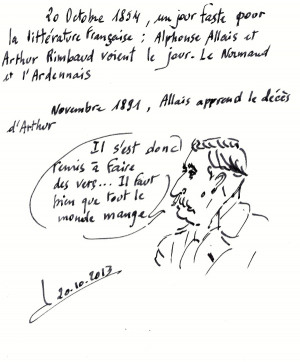 20 Octobre 1854, un jour faste pour
la littérature française : Alphonse Allais et
Arthur Rimbaud voient le jour. Le Normand
et l'Ardennais
Novembre 1891, Allais apprend le décès
d'Arthur
Il s'est donc
remis à faire
des vers... Il faut
bien que tout le
monde mange
20.10.2017